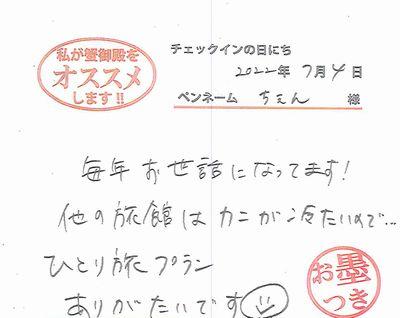 私が蟹御殿を
オススメ
します!!
チェックインの日にち
2022年 7月 4日
ペンネーム ちぇん 様
毎年お世話になってます!
他の旅館はカニが冷たいので…
ひとり旅プラン
ありがたいです
お墨
つき